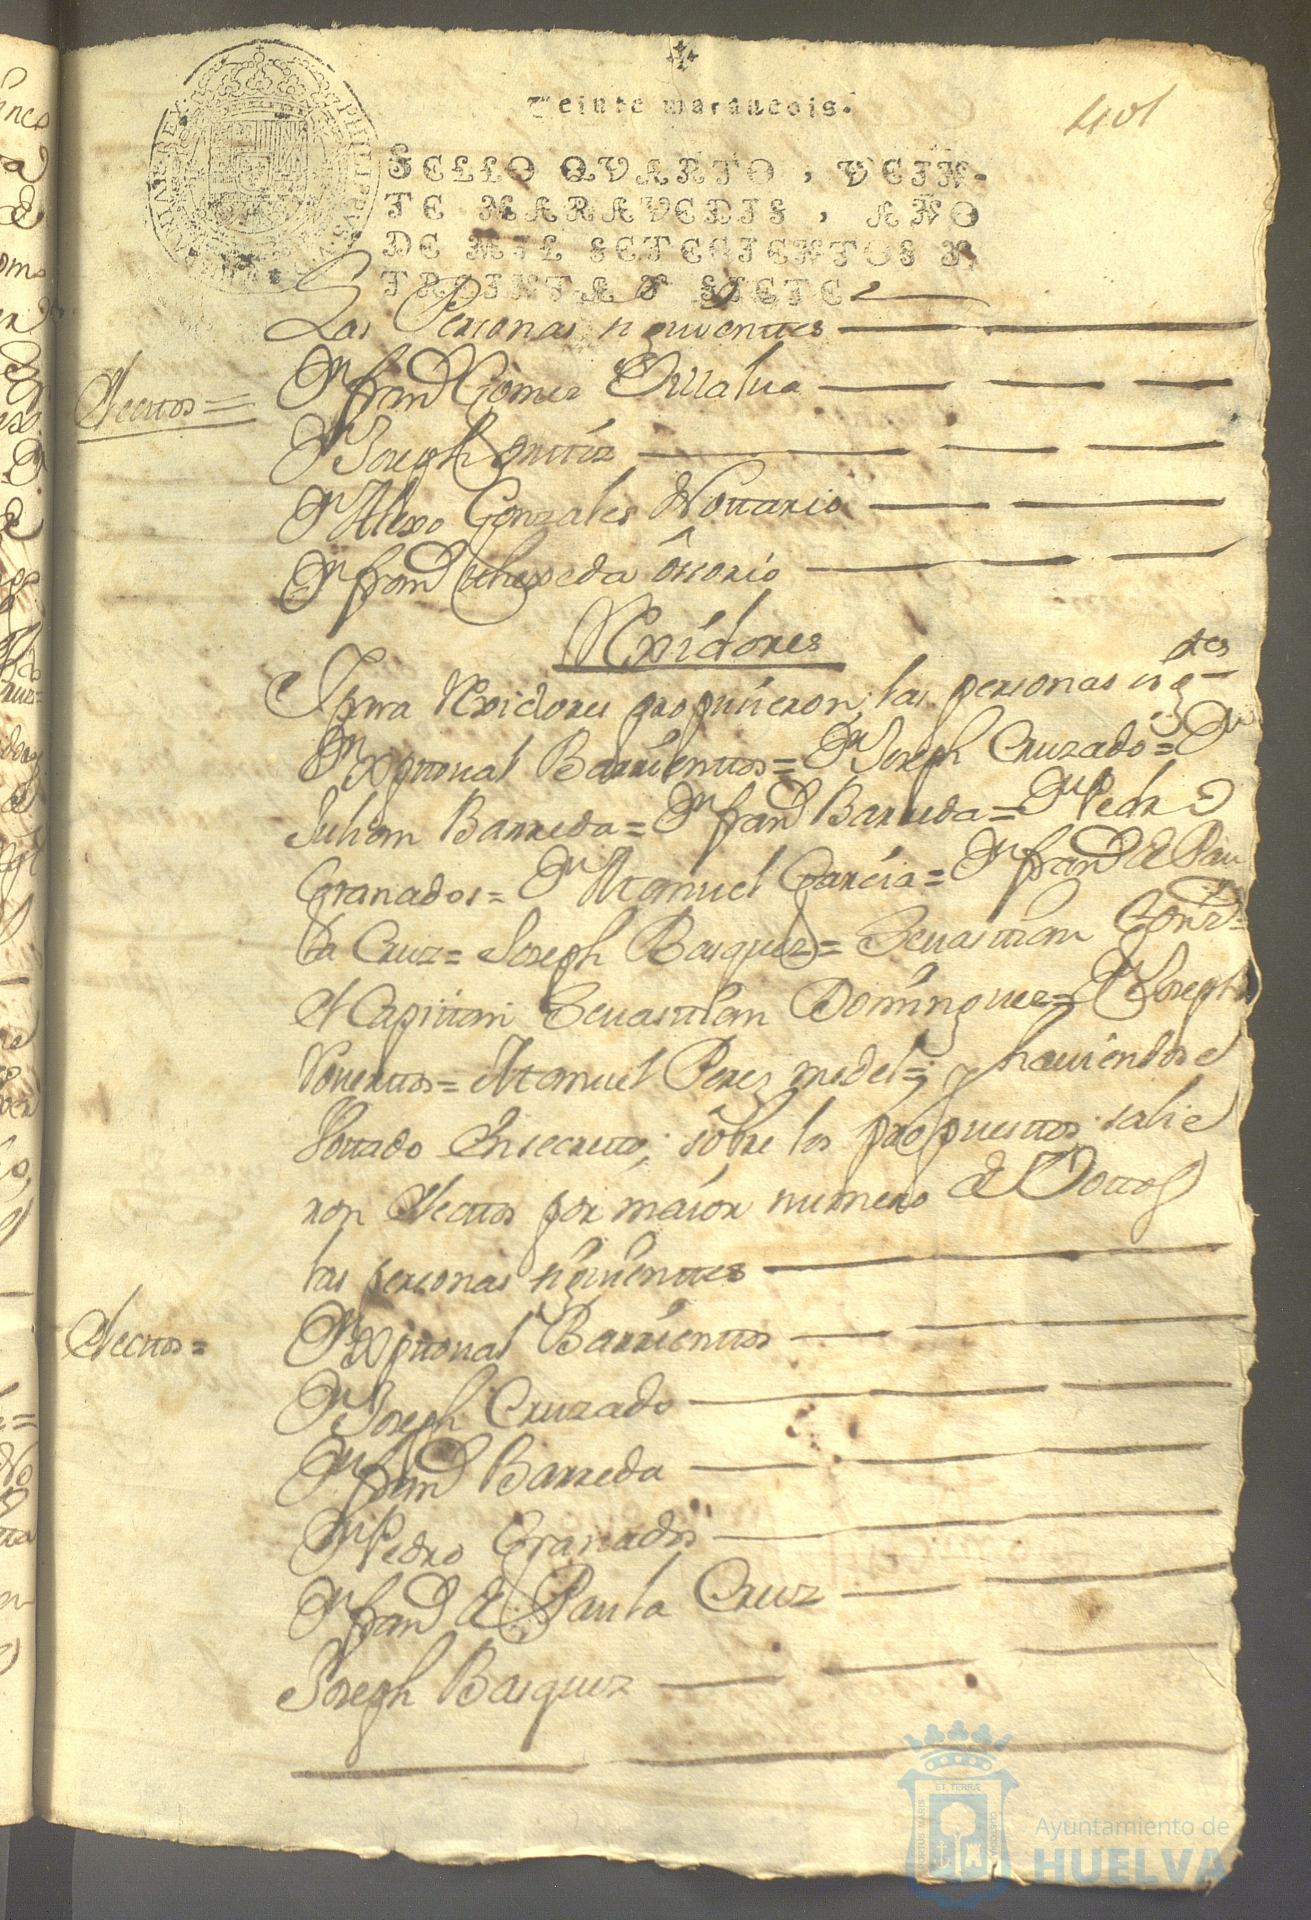 401
Veinte maravedis.
SELLO QVARTO, VEIN-
TE MARAVEDIS, AÑO
DE MIL SETECIENTOS Y
TREINTA Y SIETE
Las Personas siguienttes
Electtos=
Dn. franco Gomez Villalva
Dn. Joseph
Dn. Alexo Gonzales Nottario
Dn. franco Zespeda ossorio
Rexidores
Y para Rexidores propusieron, las personas sigtes
Dn. Xpttoval Barrienttos= Dn. Joseph Cruzado= Dn
Julian Barreda= Dn. franco Barreda= Dn. Pedro
Granados= Dn. Manuel Garcia= Dn. franco de Pau
la Cruz= Joseph Basquez= Sevasttian Gonz=
el Capittan Sevasttian Dominguez= Dn. Joseph
Manuel Perez medel=; y haviendose
Vottado En secretto; sobre los propuesttos salie
ron Electtos por maior numero de Vottos
las personas siguienttes
Electtos=
Dn. Xpttoval Barrienttos
Dn. Joseph Cruzado
Dn. franco Barreda
Dn. Pedro Granados
Dn. franco de Paula Cruz
Joseph Basquez
Ayuntamiento de
HUELVA